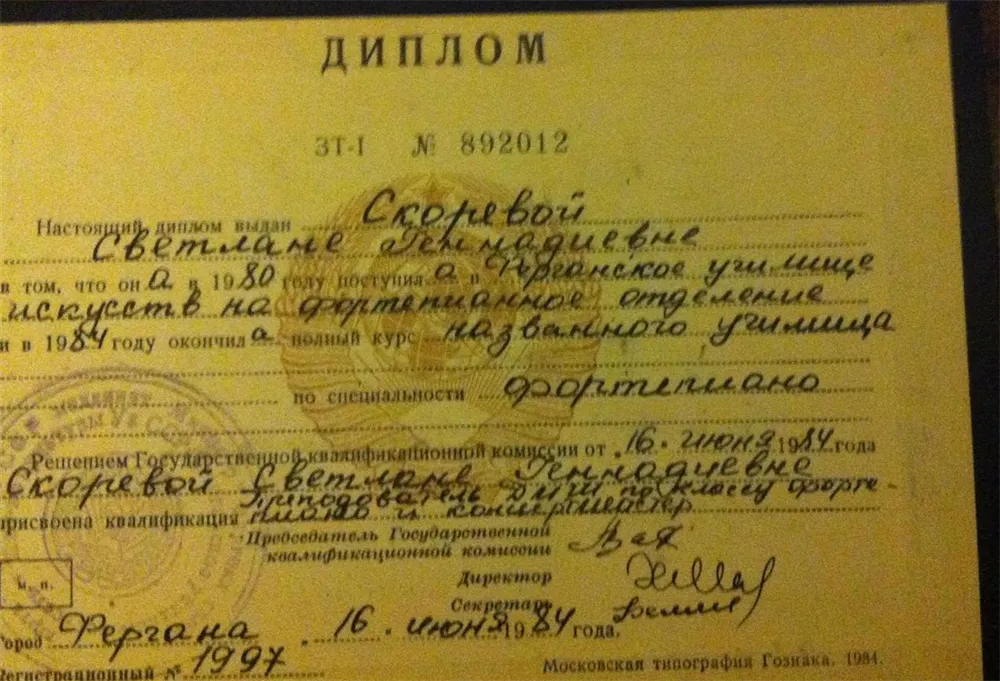 ДИПЛОМ
ЗТ-I № 892012
Настоящий диплом выдан Скоревой
Светлане Геннадиевне
в том, что она в 1980 году поступила в Ферганское училище
искусств на фортепианное отделение
и в 1984 году окончила полный курс названного училища
по специальности фортепиано
Решением Государственной квалификационной комиссии от 16 июня 1984 года
Скоревой Светлане Геннадиевне
Преподователь ДМШ по классу форте-
присвоена квалификация пиано и концертмейстер
Председатель Государственной
квалификационной комиссии
Директор
м. п.
Секретарь
город Фергана 16 июня 1984 года.
Регистрационный № 1997
Московская типография Гознака. 1984.